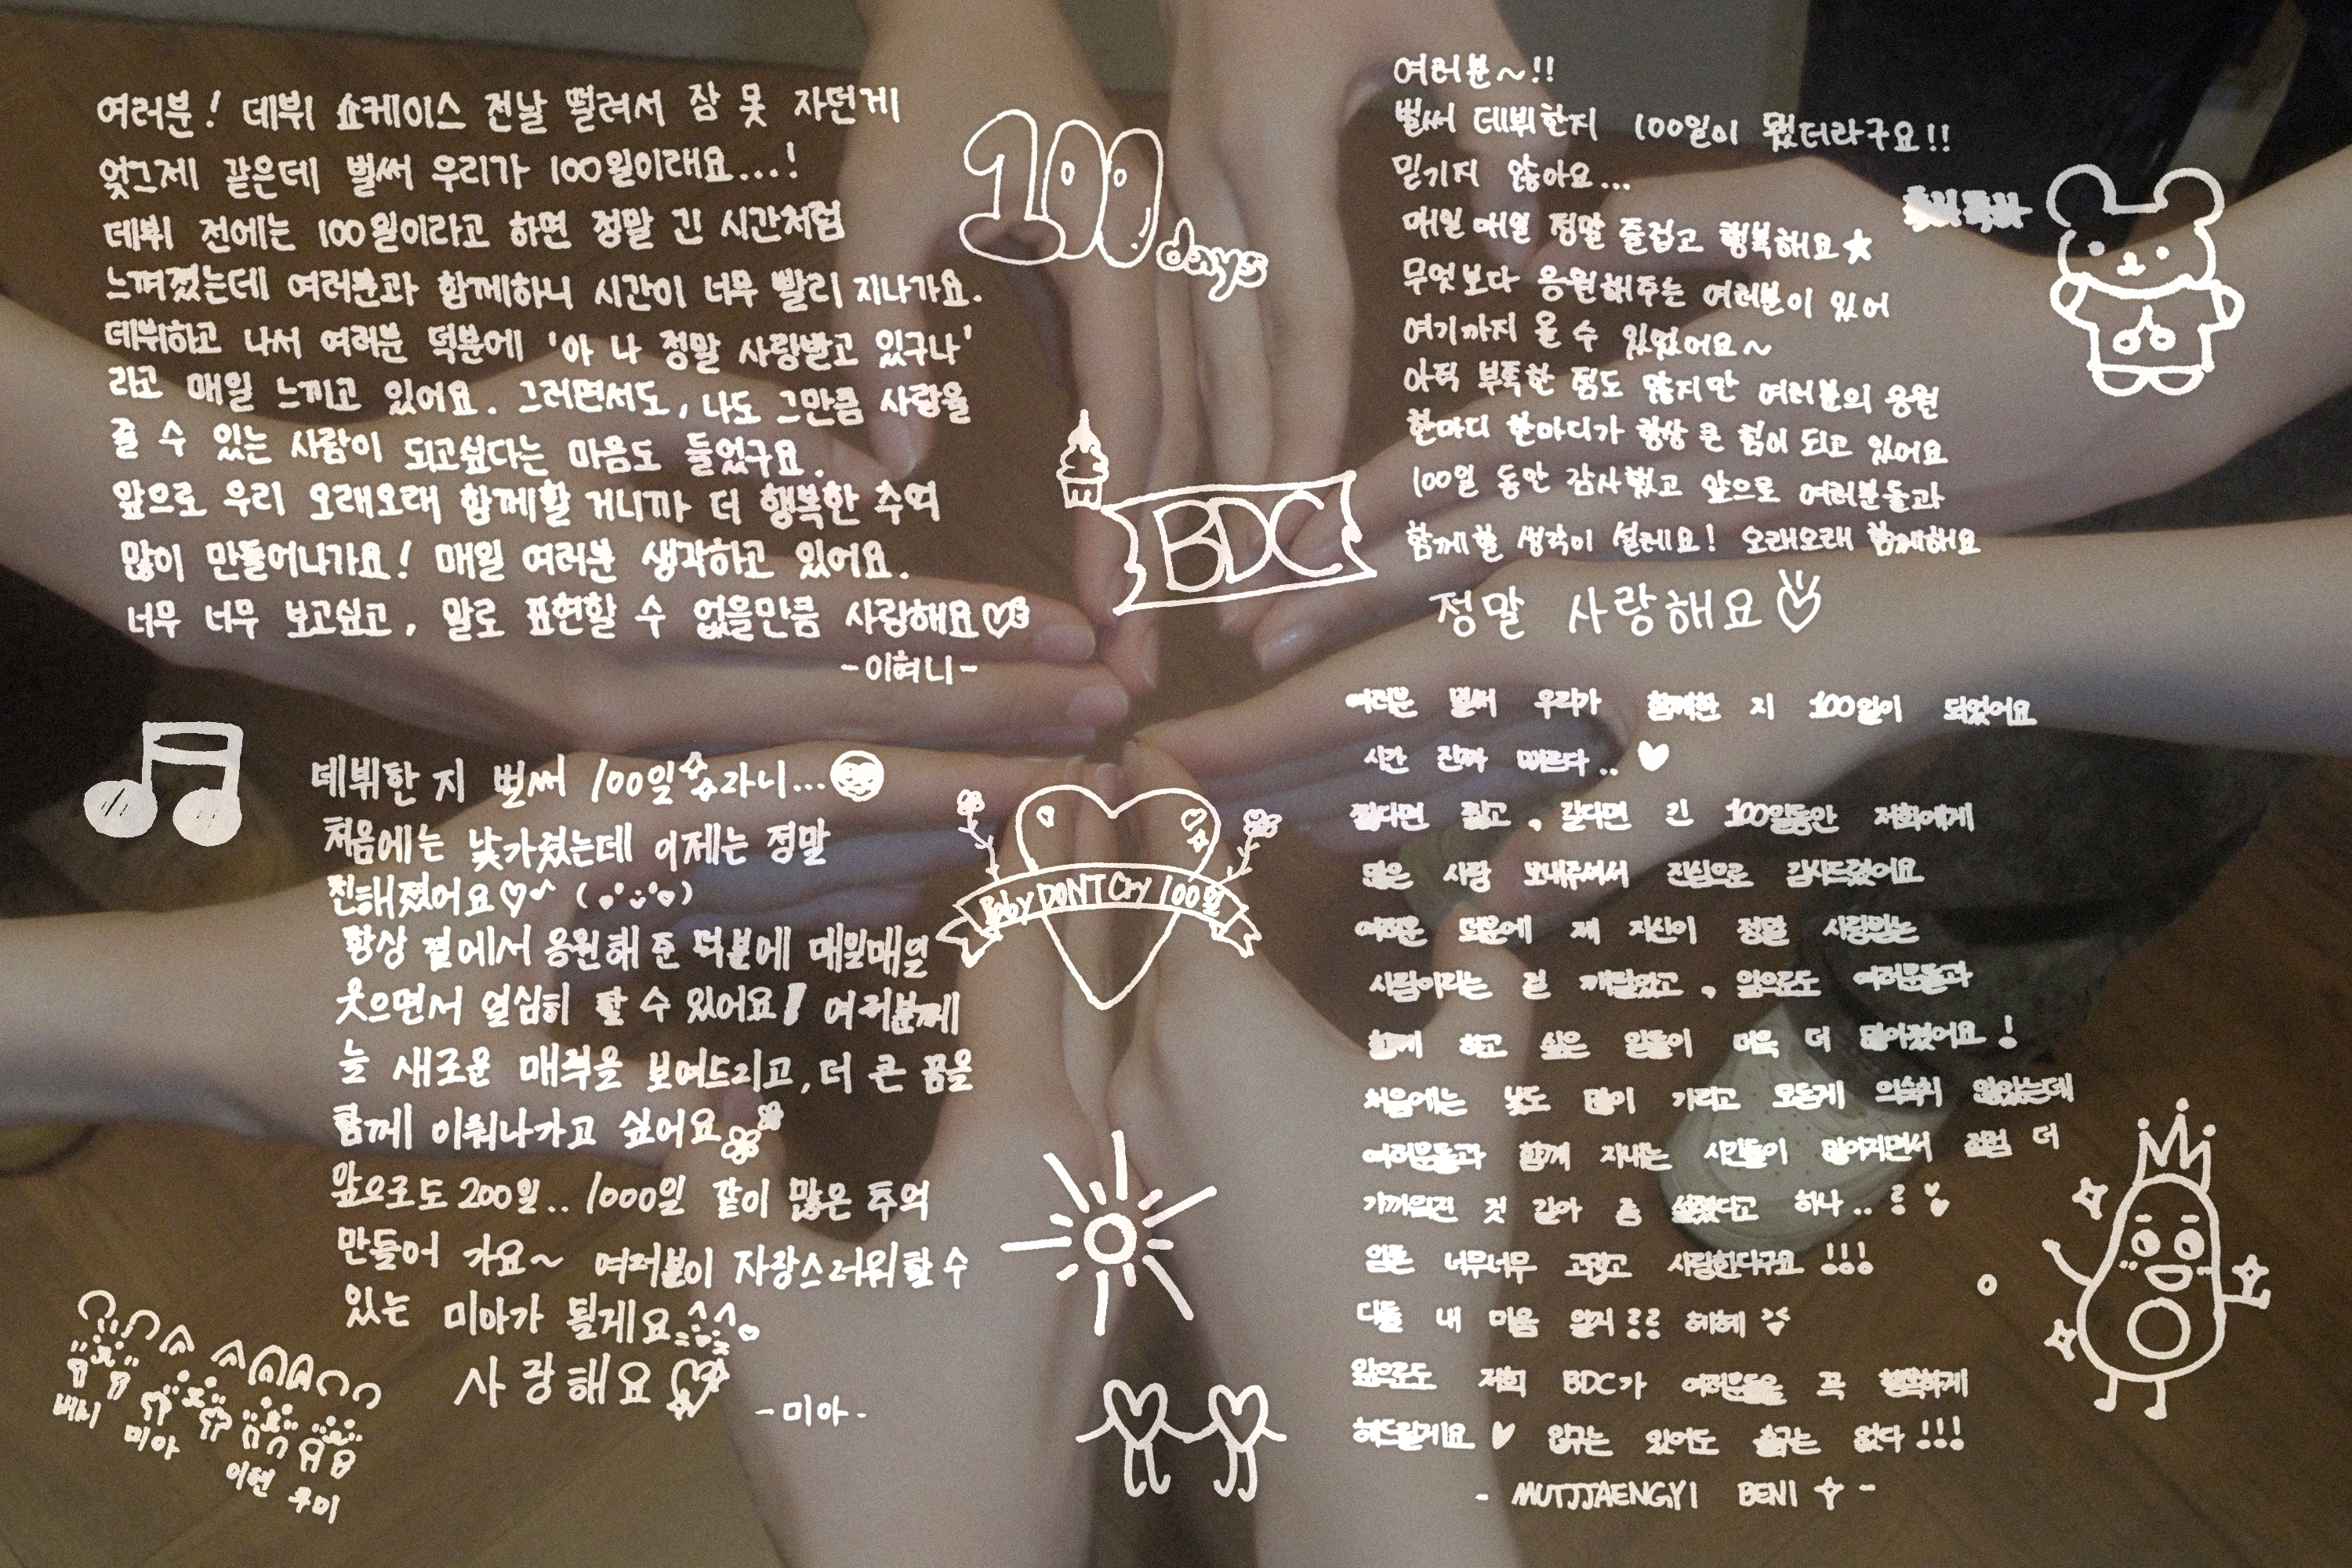 여러분! 데뷔 쇼케이스 전날 떨려서 잠 못 자던게
엊그제 같은데 벌써 우리가 100일이래요...!
데뷔 전에는 100일이라고 하면 정말 긴 시간처럼
느껴졌는데 여러분과 함께하니 시간이 너무 빨리 지나가요.
데뷔하고 나서 여러분 덕분에 '아 나 정말 사랑받고 있구나'
라고 매일 느끼고 있어요. 그러면서도, 나도 그만큼 사랑을
줄 수 있는 사람이 되고싶다는 마음도 들었구요.
앞으로 우리 오래오래 함께할 거니까 더 행복한 추억
많이 만들어나가요! 매일 여러분 생각하고 있어요.
너무 너무 보고싶고, 말로 표현할 수 없을만큼 사랑해요♡
-이혀니-
100 days
BDC
여러분~!!
벌써 데뷔한지 100일이 됐더라구요!!
믿기지 않아요...
매일 매일 정말 즐겁고 행복해요★
무엇보다 응원해주는 여러분이 있어
여기까지 올 수 있었어요~
아직 부족한 점도 많지만 여러분의 응원
한마디 한마디가 항상 큰 힘이 되고 있어요
100일 동안 감사했고 앞으로 여러분들과
함께할 생각이 설레요! 오래오래 함께해요
정말 사랑해요
데뷔한 지 벌써 100일이라니...
처음에는 낯가렸는데 이제는 정말
친해졌어요♡
항상 곁에서 응원해 준 덕분에 매일매일
웃으면서 열심히 할 수 있어요! 여러분께
늘 새로운 매력을 보여드리고, 더 큰 꿈을
함께 이뤄나가고 싶어요
앞으로도 200일.. 1000일 같이 많은 추억
만들어 가요~ 여러분이 자랑스러워할 수
있는 미아가 될게요
사랑해요
-미아-
Baby DONT Cry 100일
여러분 벌써 우리가 함께한 지 100일이 되었어요
시간 진짜 빠르다.. ♥
짧다면 짧고, 길다면 긴 100일동안 저희에게
많은 사랑 보내주셔서 진심으로 감사드렸어요
여러분 덕분에 제 자신이 정말 사랑받는
사람이라는 걸 깨달았고, 앞으로도 여러분들과
함께 하고 싶은 일들이 더욱 더 많아졌어요!
처음에는 낯도 많이 가리고 모든게 익숙치 않았는데
여러분들과 함께 지내는 시간들이 많아지면서 점점 더
가까워진 것 같아 좀 설렜다고 하나..
암튼 너무너무 고맙고 사랑한다구요!!!
다들 내 마음 알지?? 헤헤
앞으로도 저희 BDC가 여러분들을 꼭 행복하게
해드릴게요 ♥ 입구는 있어도 출구는 없다!!!
- MUTJJAENGYI BENI -
베니
미아
이현
쿠미